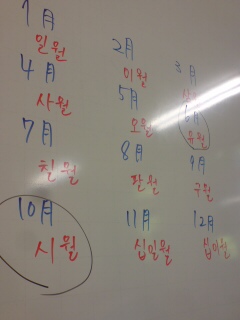 1月
일월
2月
이월
3月
4月
사월
5月
오월
6月
유월
7月
칠월
8月
팔월
9月
구월
10月
시월
11月
십일월
12月
십이월